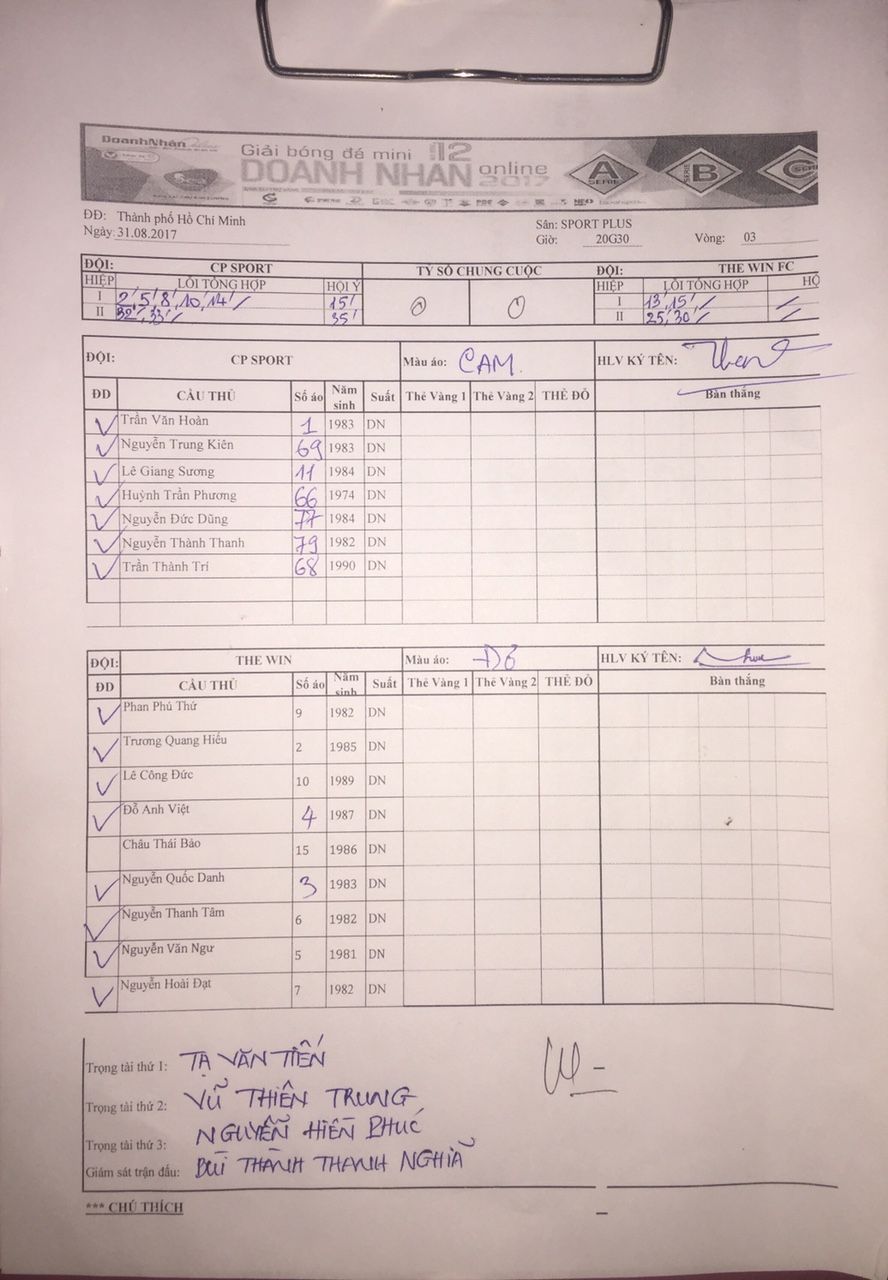 DoanhNhân
Giải bóng đá mini 12
DOANH NHÂN online 2017
A SERIE B SERIE C SERIE
ĐĐ: Thành phố Hồ Chí Minh Sân: SPORT PLUS
Ngày: 31.08.2017 Giờ: 20G30 Vòng: 03
ĐỘI: CP SPORT TỶ SỐ CHUNG CUỘC ĐỘI: THE WIN FC
HIỆP LỖI TỔNG HỢP HỘI Ý HIỆP LỖI TỔNG HỢP HỘ
I 2', 5', 8', 10, 14' / 15' 0 0 I 13, 15' /
II 32', 33' / 35' II 25', 30' /
ĐỘI: CP SPORT Màu áo: CAM. HLV KÝ TÊN:
ĐD CẦU THỦ Số áo Năm sinh Suất Thẻ Vàng 1 Thẻ Vàng 2 THẺ ĐỎ Bàn thắng
Trần Văn Hoàn 1 1983 DN
Nguyễn Trung Kiên 69 1983 DN
Lê Giang Sương 11 1984 DN
Huỳnh Trần Phương 66 1974 DN
Nguyễn Đức Dũng 77 1984 DN
Nguyễn Thành Thanh 79 1982 DN
Trần Thành Trí 68 1990 DN
ĐỘI: THE WIN Màu áo: ĐỎ HLV KÝ TÊN:
ĐD CẦU THỦ Số áo Năm sinh Suất Thẻ Vàng 1 Thẻ Vàng 2 THẺ ĐỎ Bàn thắng
Phan Phú Thứ 9 1982 DN
Trương Quang Hiếu 2 1985 DN
Lê Công Đức 10 1989 DN
Đỗ Anh Việt 4 1987 DN
Châu Thái Bảo 15 1986 DN
Nguyễn Quốc Danh 3 1983 DN
Nguyễn Thanh Tâm 6 1982 DN
Nguyễn Văn Ngư 5 1981 DN
Nguyễn Hoài Đạt 7 1982 DN
Trọng tài thứ 1: TẠ VĂN TIẾN
Trọng tài thứ 2: VŨ THIÊN TRUNG
Trọng tài thứ 3: NGUYỄN HIỀN PHÚC
Giám sát trận đấu: BÙI THÀNH THANH NGHĨA
*** CHÚ THÍCH